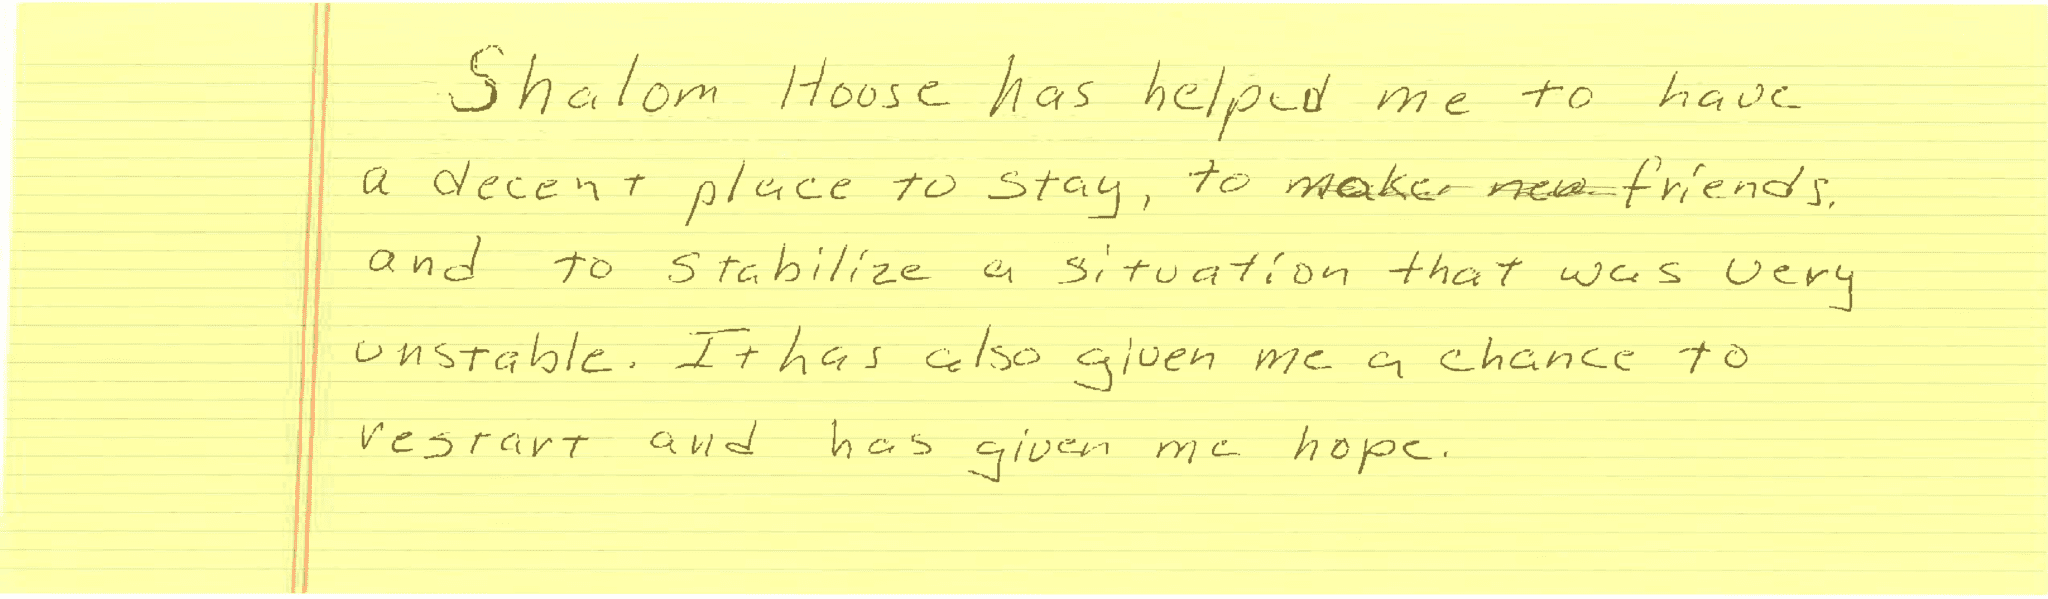 Shalom House has helped me to have
a decent place to stay, to make new friends.
and to stabilize a situation that was very
unstable. It has also given me a chance to
restart and has given me hope.